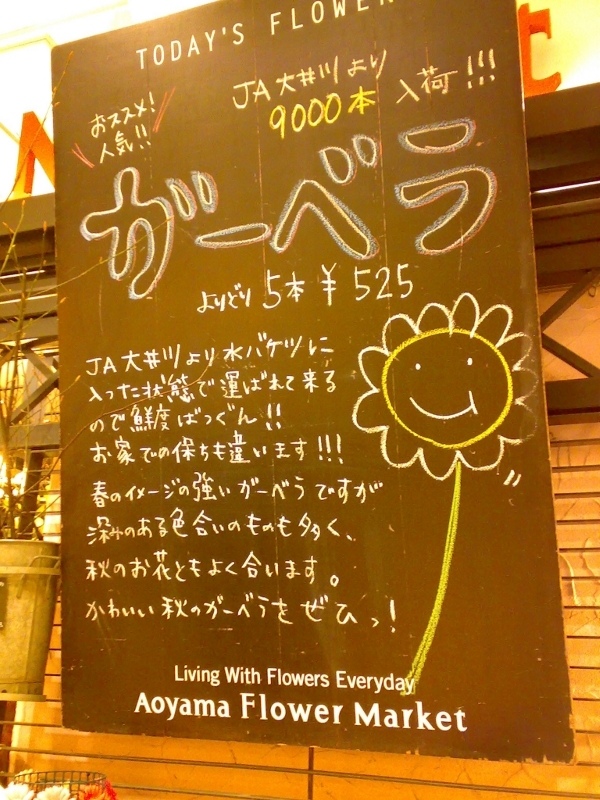 TODAY'S FLOWER
JA大井川より
9000本 入荷!!!
おススメ!
人気!!
ガーベラ
よりどり 5本 ¥525
JA大井川より水バケツに
入った状態で運ばれて来る
ので鮮度ばつぐん!!
お家での保ちも違います!!!
春のイメージの強いガーベラですが
深みのある色合いのものも多く、
秋のお花ともよく合います。
かわいい秋のガーベラをぜひっ!
Living With Flowers Everyday
Aoyama Flower Market